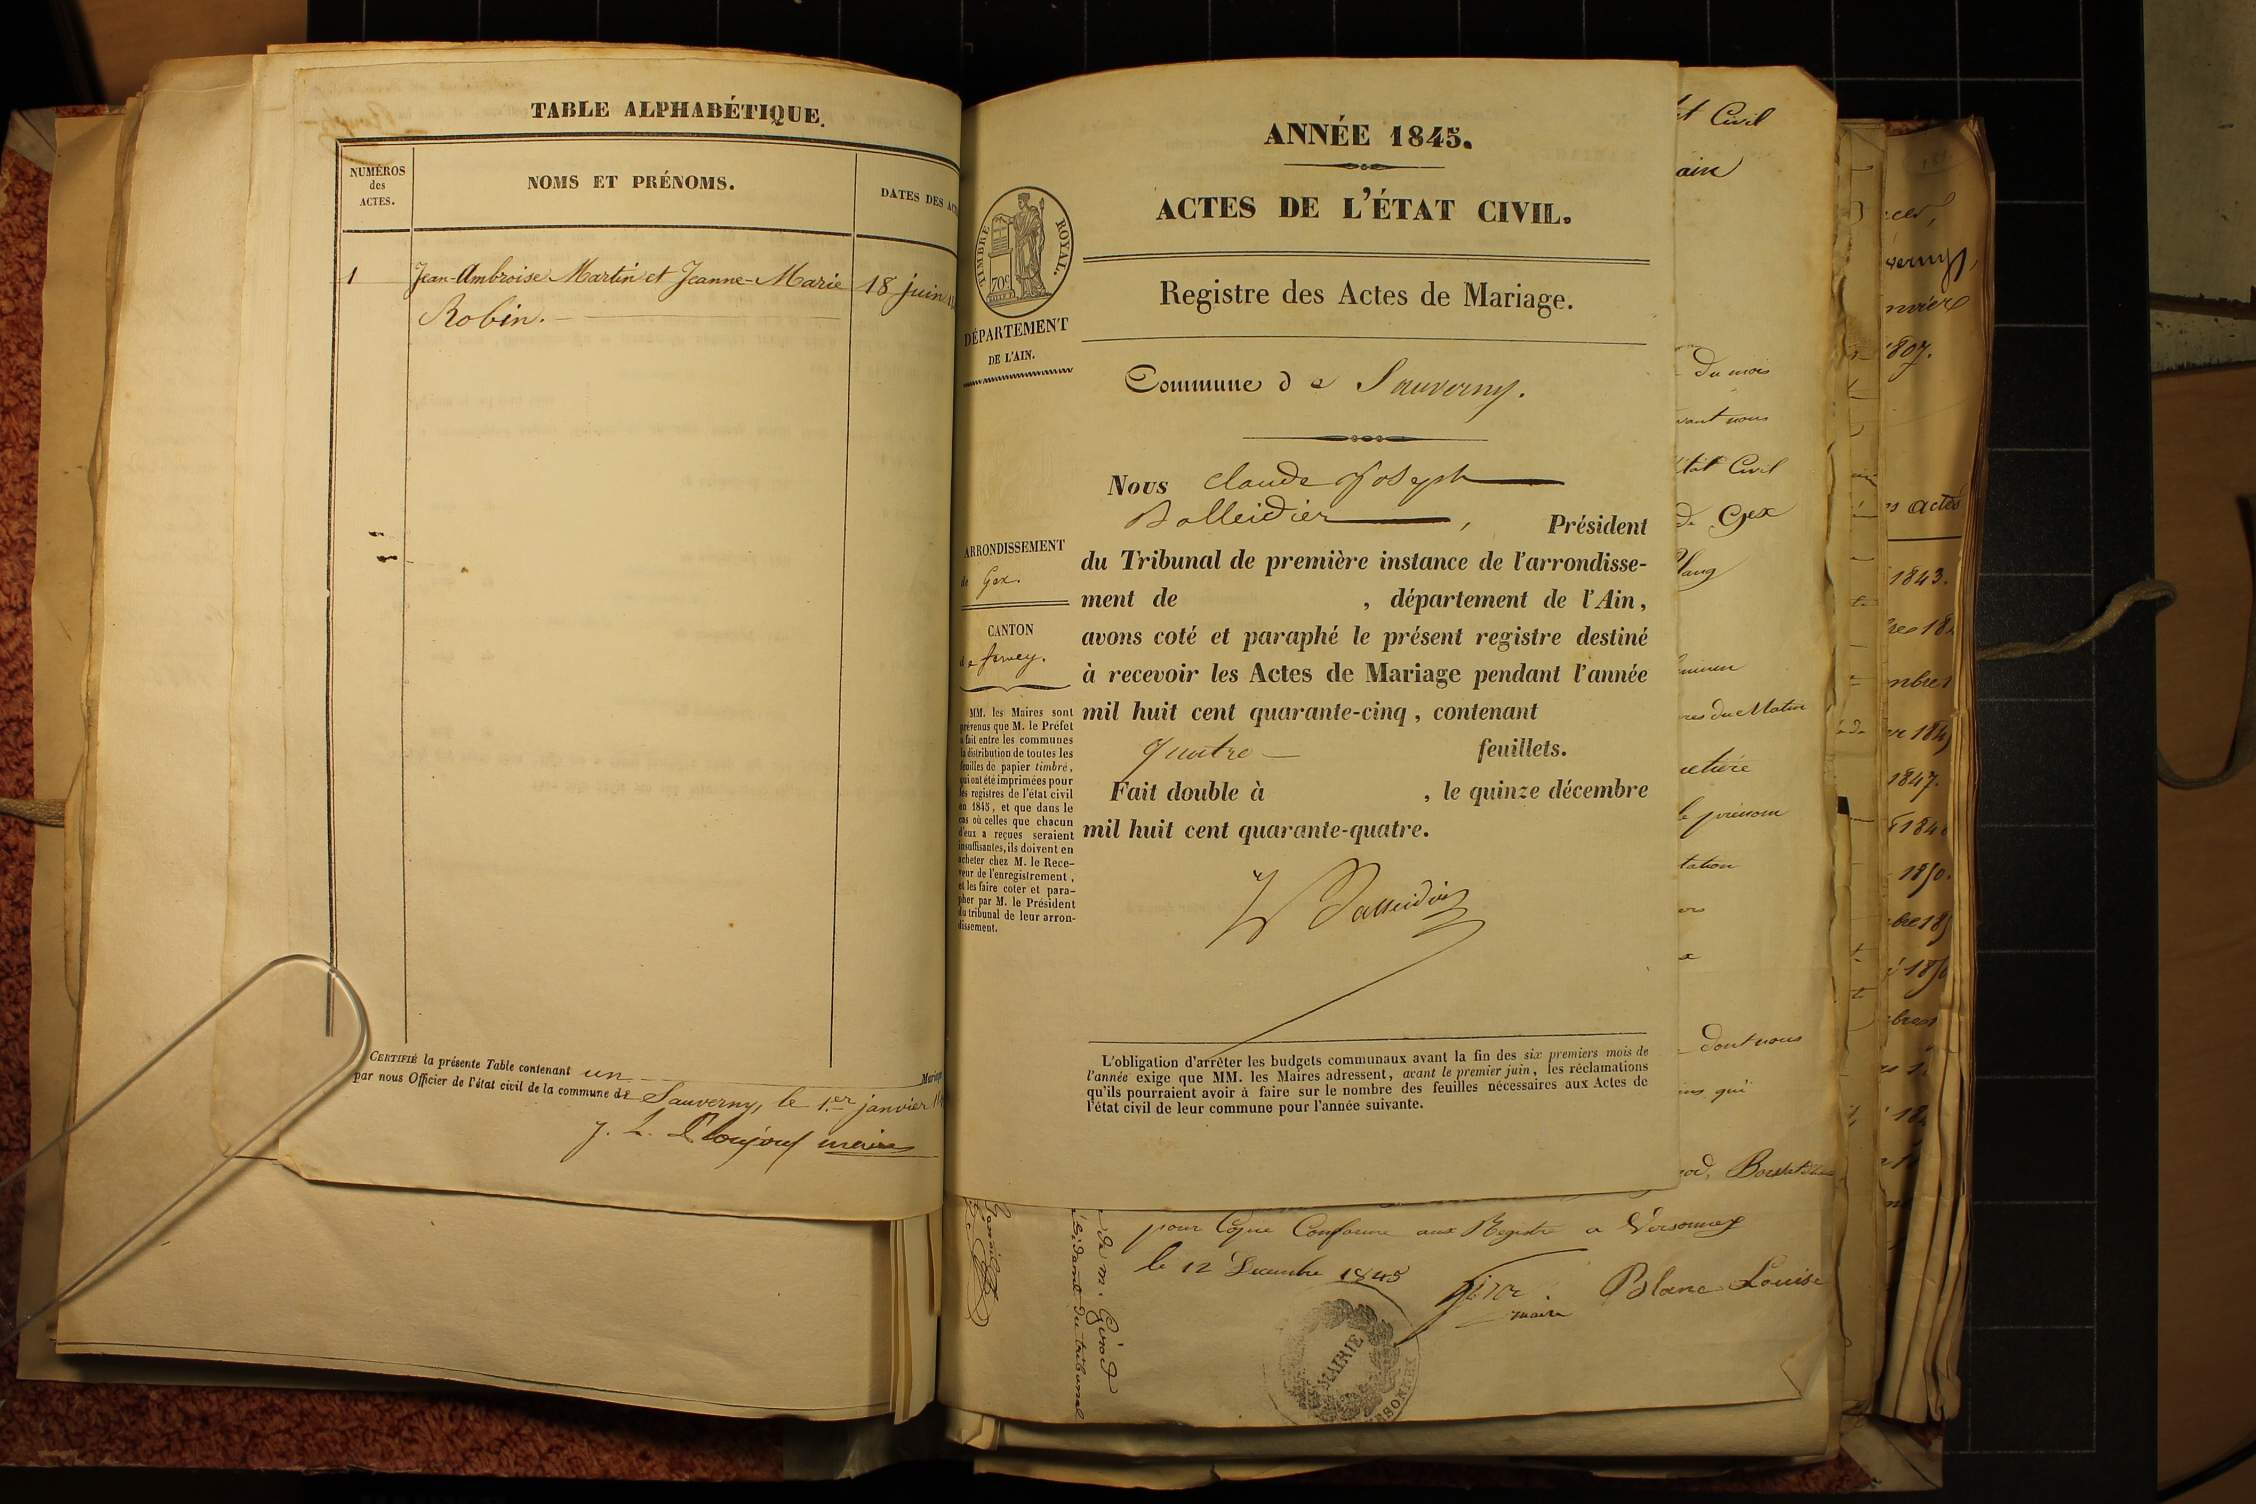 TABLE ALPHABÉTIQUE.
NUMÉROS
des
ACTES.
NOMS ET PRÉNOMS.
DATES DES
1
Jean-Ambroise Martin et Jeanne-Marie
18 juin
Robin.
CERTIFIÉ la présente Table contenant un
par nous Officier de l'état civil de la commune de Sauverny, le 1.er janvier
maire
ANNÉE 1845.
ACTES DE L'ÉTAT CIVIL.
Registre des Actes de Mariage.
Commune de Sauverny.
TIMBRE ROYAL.
70c
DÉPARTEMENT
DE L'AIN.
ARRONDISSEMENT
de Gex.
CANTON
de ferney.
MM. les Maires sont
prévenus que M. le Préfet
a fait entre les communes
la distribution de toutes les
feuilles de papier timbré,
qui ont été imprimées pour
les registres de l'état civil
en 1845, et que dans le
cas où celles que chacun
d'eux a reçues seraient
insuffisantes, ils doivent en
acheter chez M. le Rece-
veur de l'enregistrement,
et les faire coter et para-
pher par M. le Président
du tribunal de leur arron-
dissement.
Nous Claude Joseph
Balleidier, Président
du Tribunal de première instance de l'arrondisse-
ment de , département de l'Ain,
avons coté et paraphé le présent registre destiné
à recevoir les Actes de Mariage pendant l'année
mil huit cent quarante-cinq, contenant
quatre feuillets.
Fait double à , le quinze décembre
mil huit cent quarante-quatre.
Balleidier
L'obligation d'arrêter les budgets communaux avant la fin des six premiers mois de
l'année exige que MM. les Maires adressent, avant le premier juin, les réclamations
qu'ils pourraient avoir à faire sur le nombre des feuilles nécessaires aux Actes de
l'état civil de leur commune pour l'année suivante.
pour Copie Conforme aux Registre a Versonnex
le 12 Decembre 1845
maire
Blanc Louise
MAIRIE
de M. Girod
du tribunal
Civil
du mois
vant nous
Civil
de Gex
du Matin
le prénom
dont nous
qui
actes
1807.
1843.
1847.
1850.